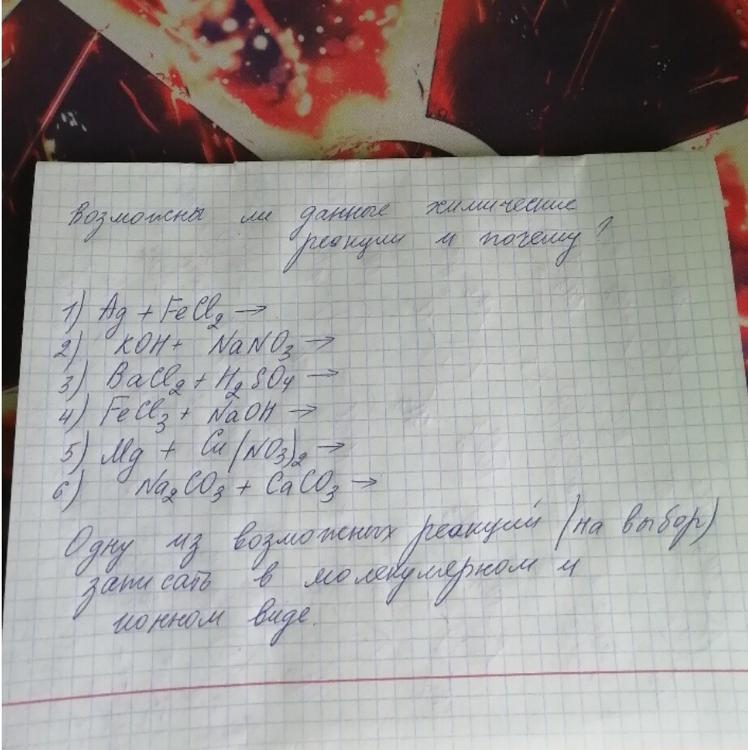 Возможны ли данные химические
реакции и почему?
1) Ag + FeCl₂ →
2) KOH + NaNO₃ →
3) BaCl₂ + H₂SO₄ →
4) FeCl₃ + NaOH →
5) Mg + Cu(NO₃)₂ →
6) Na₂CO₃ + CaCO₃ →
Одну из возможных реакций (на выбор)
записать в молекулярном и
ионном виде.